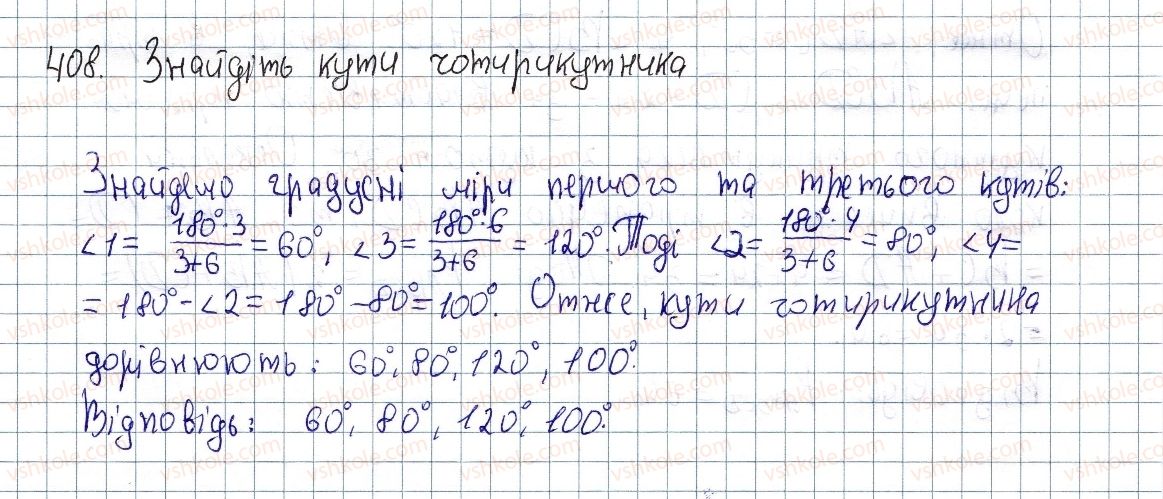 408. Знайдіть кути чотирикутника
Знайдемо градусні міри першого та третього кутів:
∠1 = 180°·3 / 3+6 = 60°, ∠3 = 180°·6 / 3+6 = 120°. Тоді ∠2 = 180°·4 / 3+6 = 80°, ∠4 =
= 180° - ∠2 = 180° - 80° = 100°. Отже, кути чотирикутника
дорівнюють: 60°, 80°, 120°, 100°.
Відповідь: 60°, 80°, 120°, 100°.